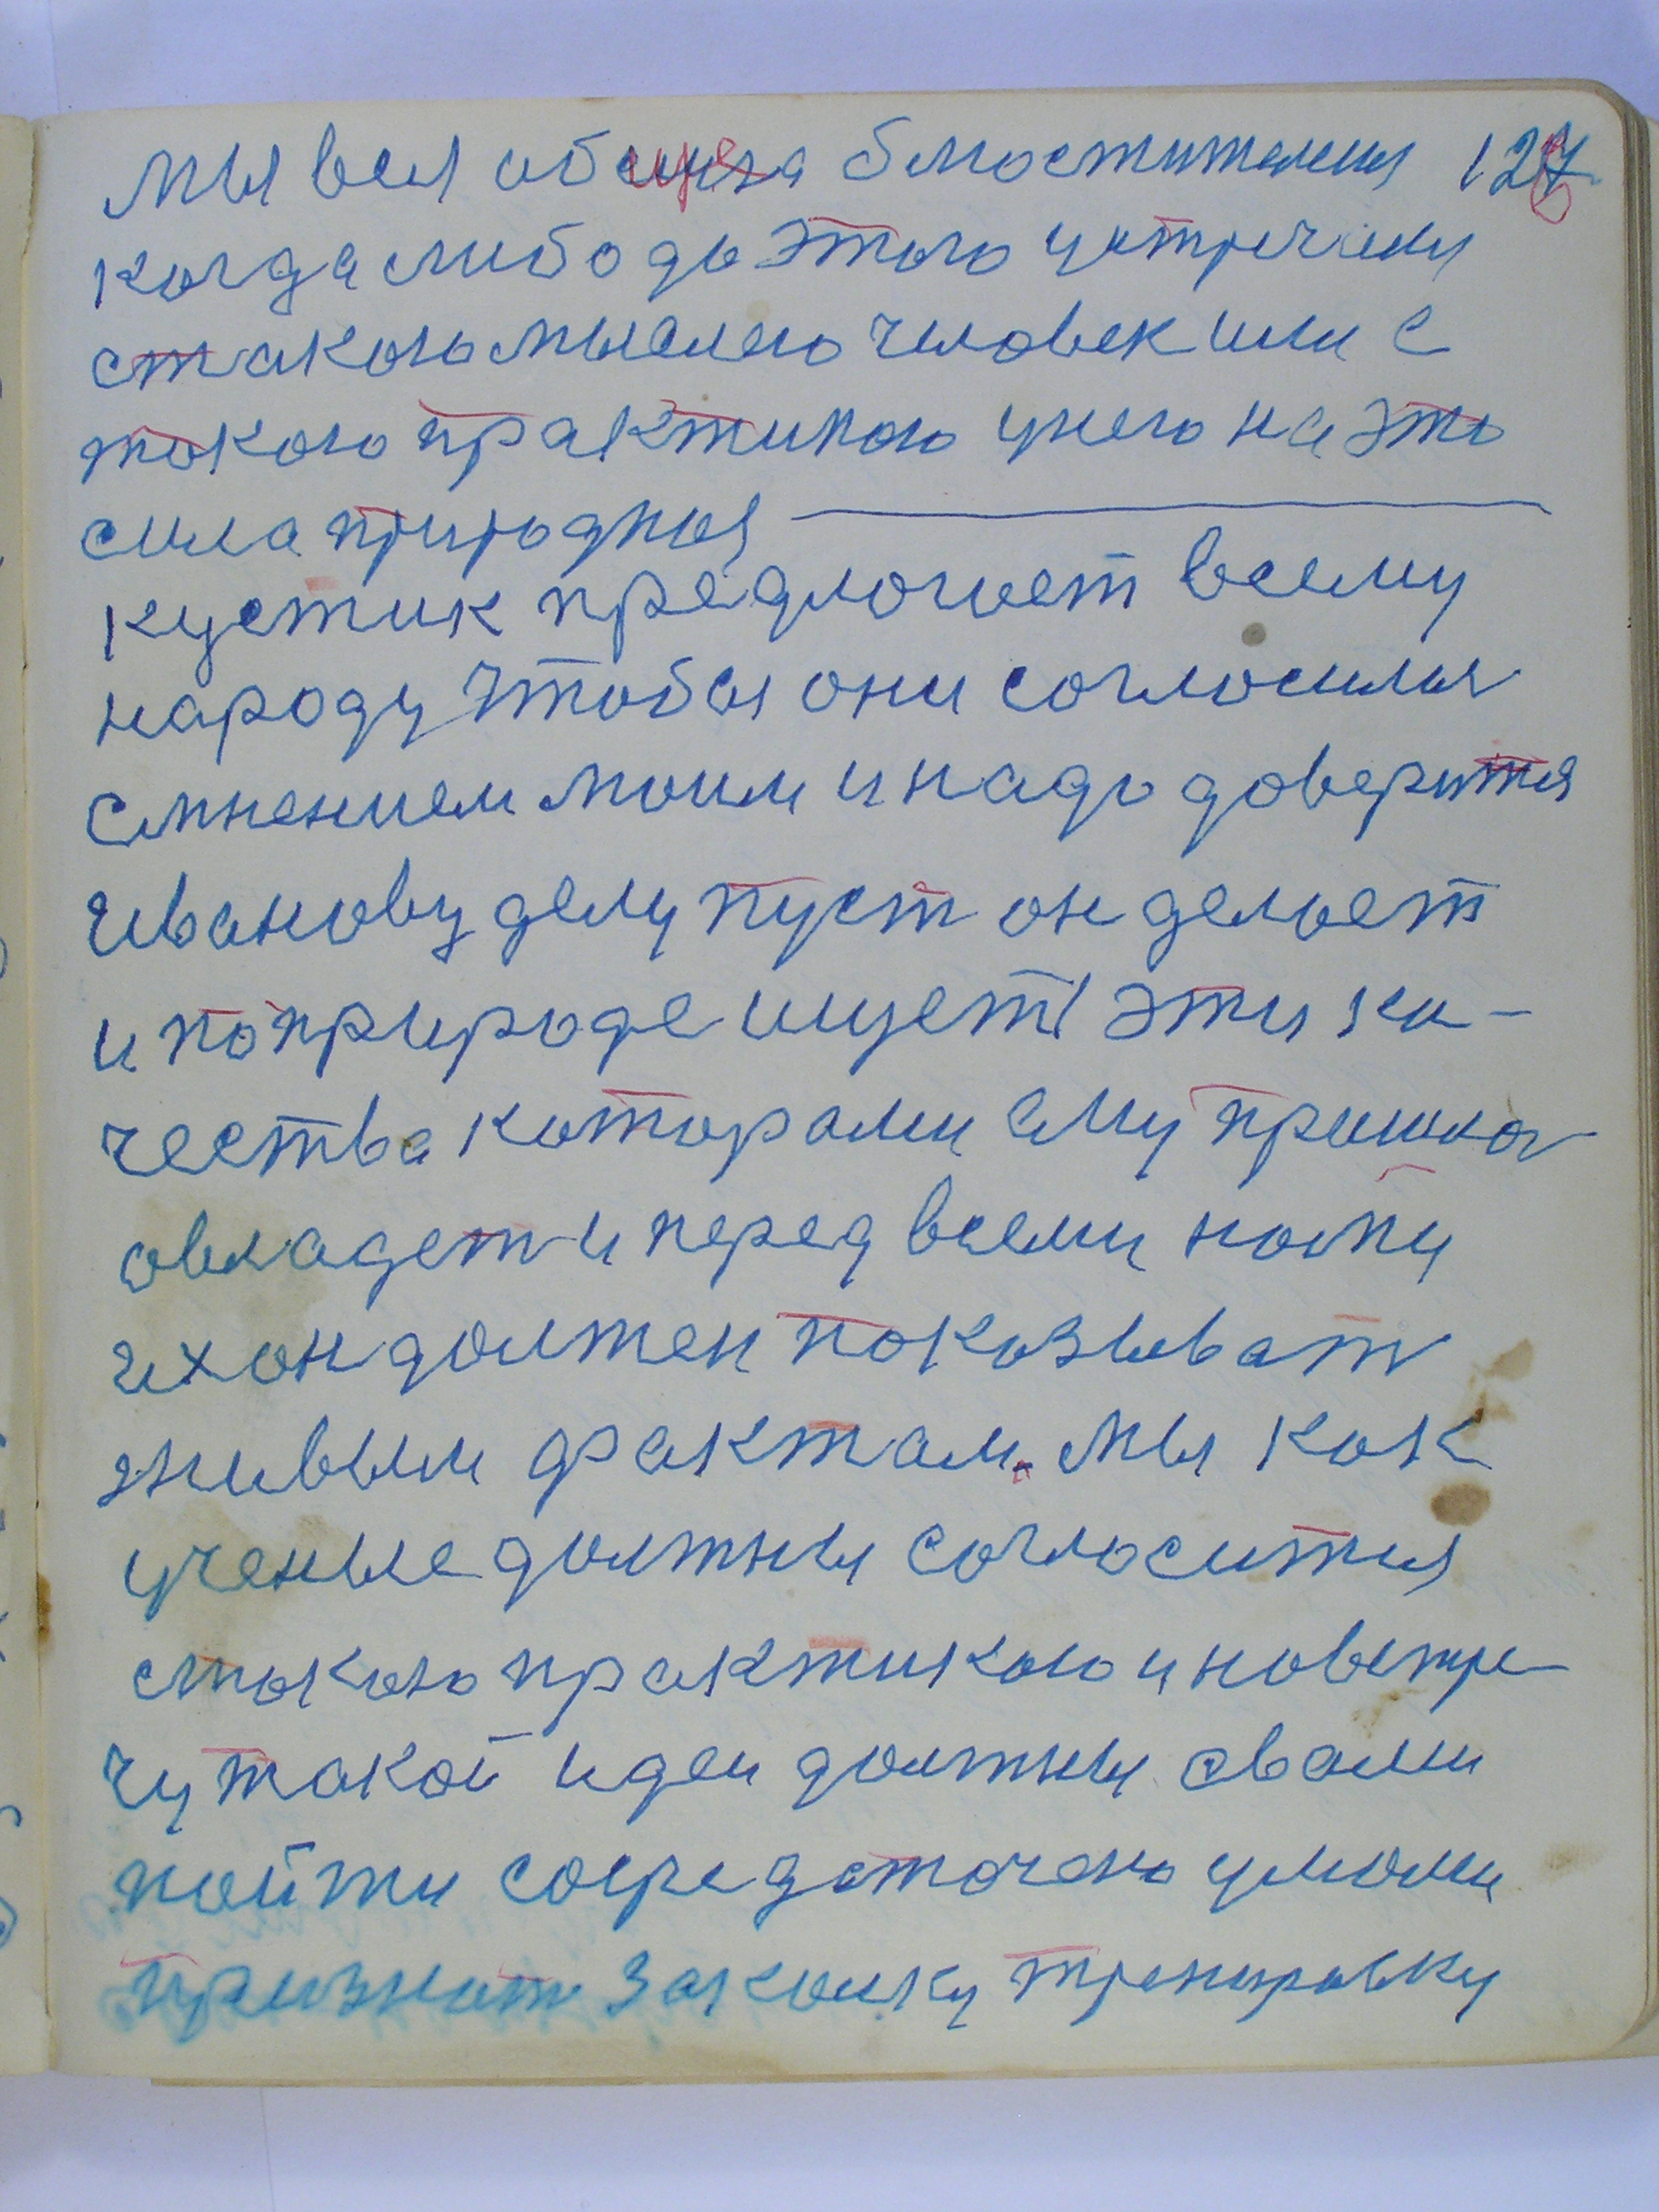 мыся обще блостителия 126
когда либо до этого устречили
стакою мыслею человек или с
такою практикою унего на это
сила природныя
кустик предлогает всему
народу чтобы они согласилия
смнением моим и надо доверится
Иванову делу пуст он делает
и поприроде ищет эти ка-
чества которами ему пришлос
овладет и перед всеми нами
их он должен показыват
живым фактам. Мы как
ученые должны согласится
стакою практикою и навстре
чу такой идеи должны свами
пойти сосредоточено умами
признат закалку тренировку